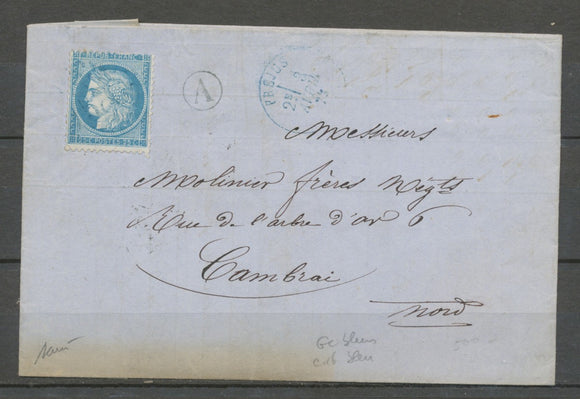 REPUB·FRANC
25 C POSTES 25 C
A
2E
3
Messieurs
Molinier frères Négts
Rue de l'arbre d'or 6
Cambrai
Nord
Gc bleu
càd bleu